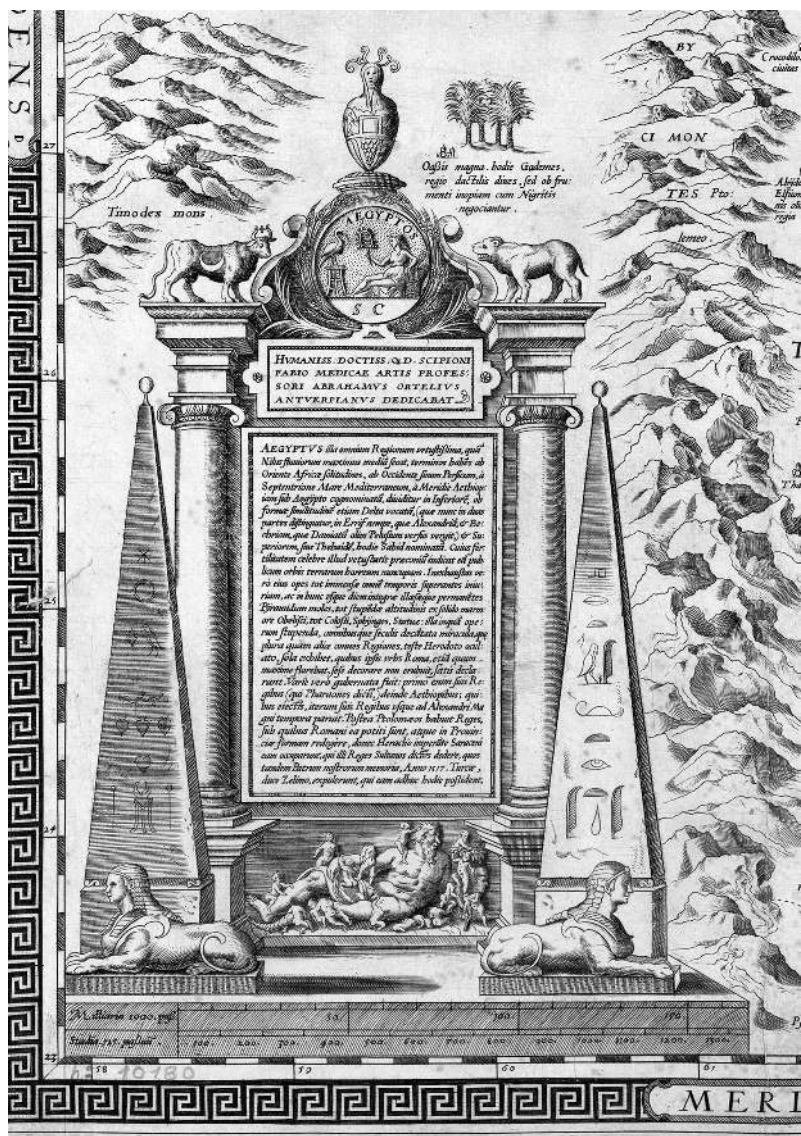 DENS
BY
Crocodilo
ciuitas
27
CI MON
Oaßis magna. hodie Gademes.
regio dactilis diues, sed ob fru-
menti inopiam cum Nigritis
negociantur.
TES Pto:
lemeo.
Tinodex mons
AEGYPTOS
S C
26
HVMANISS. DOCTISS. Q. D. SCIPIONI
FABIO MEDICAE ARTIS PROFES:
SORI ABRAHAMVS ORTELIVS
ANTVERPIANVS DEDICABAT
AEGYPTVS illa omnium Regionum vetustißima, quā
Nilus fluuiorum maximus mediā secat, terminos habēs ab
Oriente Africæ solitudines, ab Occidente sinum Persicum, à
Septentrione Mare Mediterraneum, à Meridie Aethiop-
iam sub Aegypto cognominatā, diuiditur in Inferiorē, ob
formæ similitudinē etiam Delta vocatā, (quæ nunc in duas
partes distinguitur, in Errif nempe, quæ Alexandriā, & Be-
chriam, quæ Damiatā olim Pelusium versus vergit,) & Su-
periorem, siue Thebaidē, hodie Sahid nominatā. Cuius fer-
tilitatem celebre illud vetustatis præconiū indicat eā pub
licum orbis terrarum horreum nuncupans. Inexhaustas ve-
rò eius opes tot immensæ omnē temporis superantes iniu-
riam, ac in hunc vsque diem integræ illæsæque permanētes
Piramidum moles, tot stupendæ altitudinis ex solido marm
ore Obelisci, tot Colossi, Sphynges, Statuæ: illa inquā ope:
rum stupenda, omnibusque seculis decātata miracula, quę
plura quàm aliæ omnes Regiones, teste Herodoto ocul-
ato, sola exhibet, quibus ipsa vrbs Roma, etiā quum
maxime florebat, sese decorare non erubuit, satis decla
rant. Variè verò gubernata fuit: primo enim suis Re-
gibus (qui Pharaones dicti,) deinde Aethiopibus; qui-
bus eiectis, iterum suis Regibus vsque ad Alexandri Ma
gni tempora paruit. Postea Ptolomæos habuit Reges,
sub quibus Romani ea potiti sunt, atque in Prouin-
ciæ formam redegere, donec Heraclio imperāte Saraceni
eam occuparunt, qui illi Reges Sultanos dictos dedere, quos
tandem Patrum nostrorum memoria, Anno 1517. Turcæ,
duce Zelimo, expulerunt, qui eam adhuc hodie possident.
25
24
Milliaria 1000. paß.
50. 100. 150.
Stadia 125. passuū
100. 200. 300. 400. 500. 600. 700. 800. 900. 1000. 1100. 1200. 1300.
23
58 59 60 61
10180
MERI